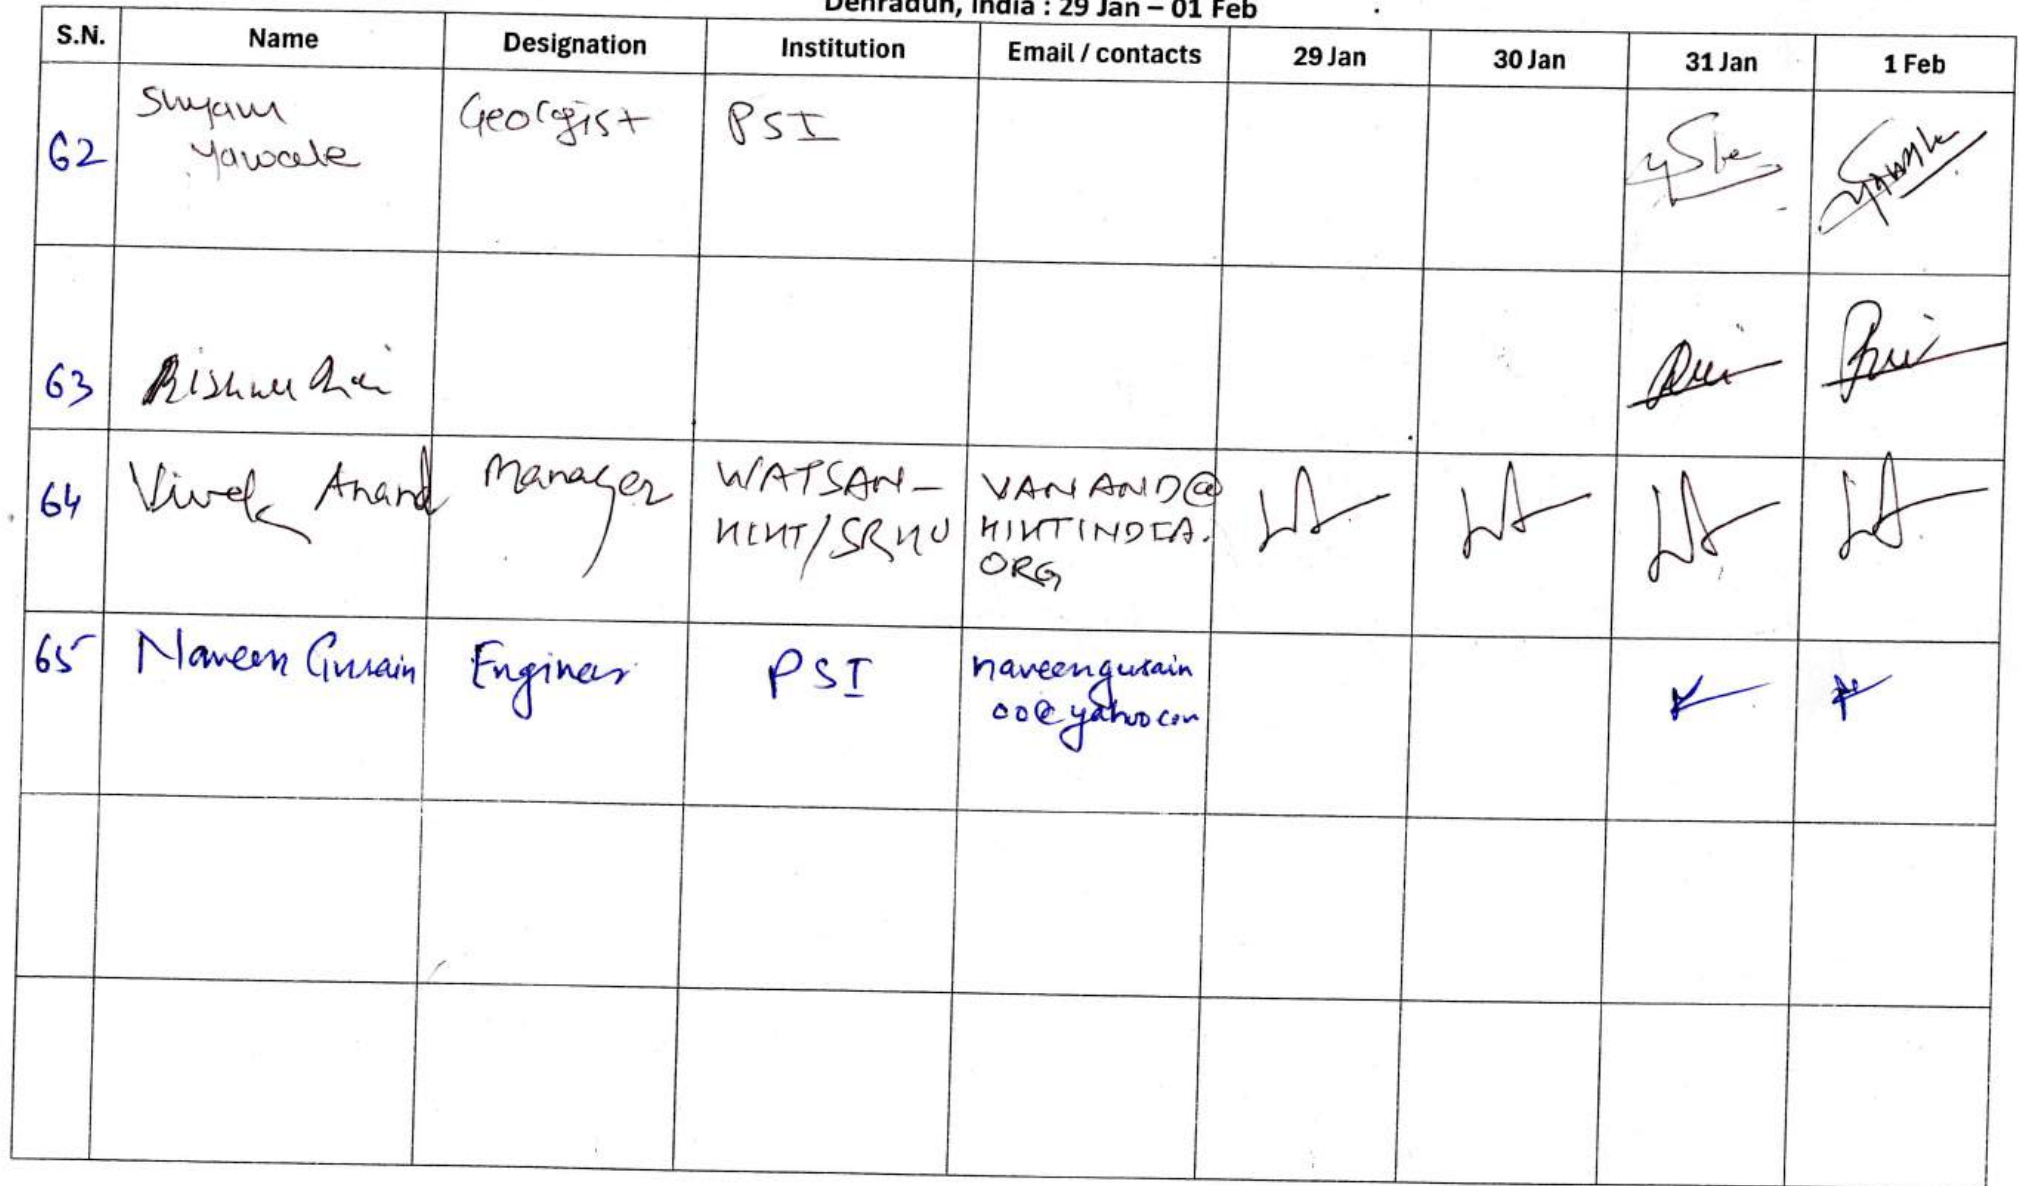 Dehradun, India : 29 Jan – 01 Feb
S.N. Name Designation Institution Email / contacts 29 Jan 30 Jan 31 Jan 1 Feb
62 Shyam Geologist PSI
Yawale
63
64 Vivek Anand Manager WATSAN- VANAND@
HIHT/SRHU HIHTINDIA.
ORG
65 Naveen Gusain Engineer PSI naveengusain
00@yahoo.com